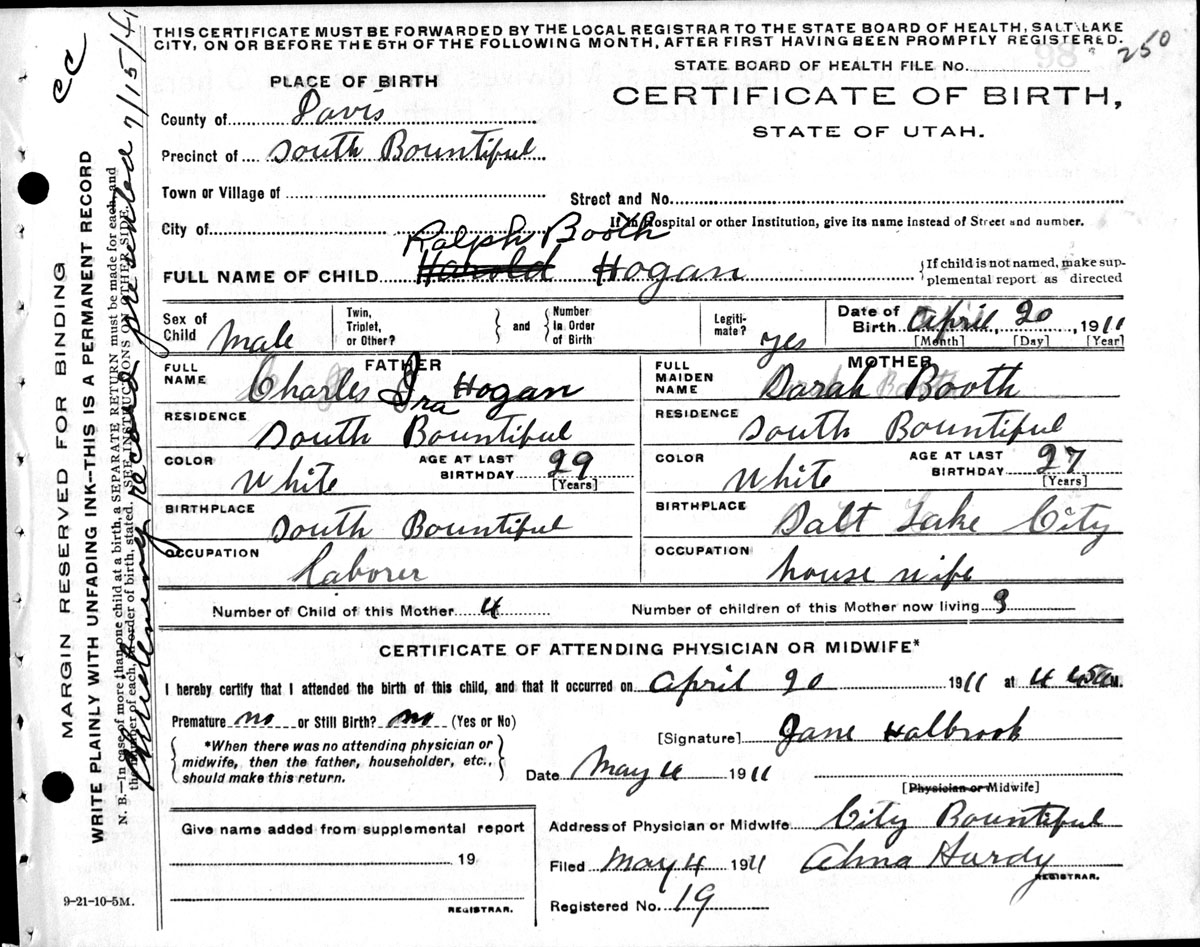 THIS CERTIFICATE MUST BE FORWARDED BY THE LOCAL REGISTRAR TO THE STATE BOARD OF HEALTH, SALT LAKE
CITY, ON OR BEFORE THE 5TH OF THE FOLLOWING MONTH, AFTER FIRST HAVING BEEN PROMPTLY REGISTERED.
250
98
STATE BOARD OF HEALTH FILE No.
PLACE OF BIRTH
CERTIFICATE OF BIRTH,
STATE OF UTAH.
County of Davis
Precinct of South Bountiful
Town or Village of
Street and No.
City of
If in Hospital or other Institution, give its name instead of Street and number.
Ralph Booth
FULL NAME OF CHILD Harold Hogan
If child is not named, make sup-
plemental report as directed
Sex of Child Male
Twin, Triplet, or Other?
and
Number In Order of Birth
Legiti-mate? yes
Date of Birth April 20, 1911
[Month] [Day] [Year]
FATHER
FULL NAME Charles Ira Hogan
MOTHER
FULL MAIDEN NAME Sarah Booth
RESIDENCE South Bountiful
RESIDENCE South Bountiful
COLOR White AGE AT LAST BIRTHDAY 29 [Years]
COLOR White AGE AT LAST BIRTHDAY 27 [Years]
BIRTHPLACE South Bountiful
BIRTHPLACE Salt Lake City
OCCUPATION Laborer
OCCUPATION house wife
Number of Child of this Mother 4
Number of children of this Mother now living 3
CERTIFICATE OF ATTENDING PHYSICIAN OR MIDWIFE*
I hereby certify that I attended the birth of this child, and that it occurred on April 20 1911 at 4 45 a M.
Premature no or Still Birth? no (Yes or No)
*When there was no attending physician or
midwife, then the father, householder, etc.,
should make this return.
[Signature] Jane Halbrook
Date May 4 1911
[Physician or Midwife]
Give name added from supplemental report
19
REGISTRAR.
Address of Physician or Midwife City Bountiful
Filed May 4 1911 Alma Hardy
REGISTRAR.
Registered No. 19
9-21-10-5M.
MARGIN RESERVED FOR BINDING
WRITE PLAINLY WITH UNFADING INK--THIS IS A PERMANENT RECORD
N. B.--In case of more than one child at a birth, a SEPARATE RETURN must be made for each, and
the number of each, in order of birth, stated. SEE INSTRUCTIONS ON OTHER SIDE.
record presented 7/15/41
CC